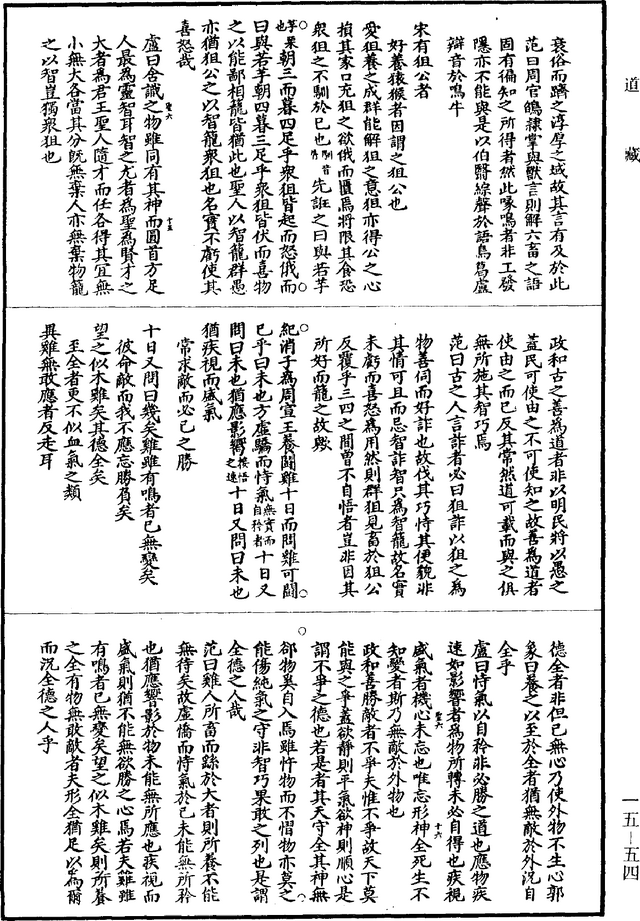 道藏
衰俗而躋之淳厚之域故其言有及於此
范曰周官鴟隸掌與獸言則解六畜之語
固有徧知之所得者然此喙鳴者非工發
隱亦不能與是以伯翳綜聲於語鳥葛盧
辯音於鳴牛
宋有狙公者
好養猿猴者因謂之狙公也
愛狙養之成群能解狙之意狙亦得公之心
損其家口充狙之欲俄而匱焉將限其食恐
衆狙之不馴於己也先誑之曰與若芧
芧果朝三而暮四足乎衆狙皆起而怒俄而
曰與若芧朝四暮三足乎衆狙皆伏而喜物
之以能鄙相籠皆猶此也聖人以智籠群愚
亦猶狙公之以智籠衆狙也名實不虧使其
喜怒哉
盧曰含識之物雖同有其神而圓首方足
人最為靈智耳智之尤者為聖為賢才之
大者為君王聖人隨才而任各得其宜無
小無大各當其分既無棄人亦無棄物籠
之以智豈獨衆狙也
政和古之善為道者非以明民將以愚之
蓋民可使由之不可使知之故善為道者
使由之而已反其常然道可載而與之俱
無所施其智巧焉
范曰古之人言詐者必曰狙詐以狙之為
物善伺而好詐也故伐其巧恃其便貌非
其情可且而忌智詐智只為智籠故名實
未虧而喜怒為用然則群狙見畜於狙公
反覆乎三四之間曾不自悟者豈非因其
所好而籠之故歟
紀渻子為周宣王養鬪雞十日而問雞可鬪
已乎曰未也方虛驕而恃氣無實而自矜者十日又
問曰未也猶應影響接悟之速十日又問曰未也
猶疾視而盛氣
常求敵而必己之勝
十日又問曰幾矣雞雖有鳴者已無變矣
彼命敵而我不應忘勝負矣
望之似木雞矣其德全矣
至全者更不似血氣之類
異雞無敢應者反走耳
德全者非但己無心乃使外物不生心郭
象曰養之以至於全者猶無敵於外況自
全乎
盧曰恃氣以自矜非必勝之道也應物疾
速如影響者為物所轉未必自得也疾視
盛氣者機心未忘也唯忘形神全死生不
知變者斯乃無敵於外物也
政和善勝敵者不爭夫惟不爭故天下莫
能與之爭蓋欲靜則平氣欲神則順心是
謂不爭之德也若是者其天守全其神無
郤物奚自入焉雖忤物而不慴物亦莫之
能傷純氣之守非智巧果敢之列也是謂
全德之人哉
范曰雞人所畜而鎃於大者則所養不能
無待矣故虛憍而恃氣於己未能無所矜
也猶應響影於物未能無所應也疾視而
盛氣則猶不能無欲勝之心焉若夫雞雖
有鳴者已無變矣望之似木雞矣則所養
之全有物無敢敵者夫形全猶足以為爾
而況全德之人乎
一五—五四